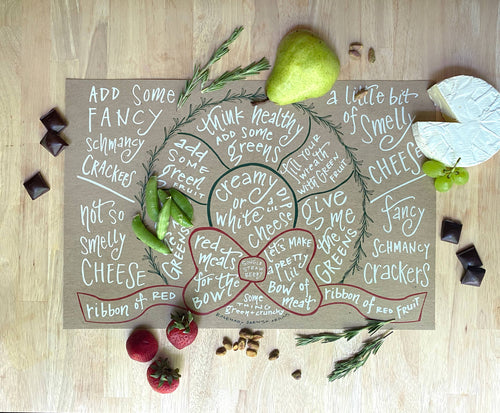 ADD SOME
FANCY
schmancy
CRACKERS
not so
smelly
CHEESE
ribbon of RED
think healthy
ADD SOME
greens
add
SOME
green
FRUIT
fill YOUR
wreath
with GREEN
FRUIT
creamy DIP
OR a lil
white CHEESE
GREENS
give
me
the
GREENS
red
meats
for the
BOW
LETS MAKE
a PRETTY
lil
BOW of
meat
some
THING
green + crunchy
a little bit
of
smelly
CHEESE
fancy
SCHMANCY
crackers
ribbon of RED FRUIT